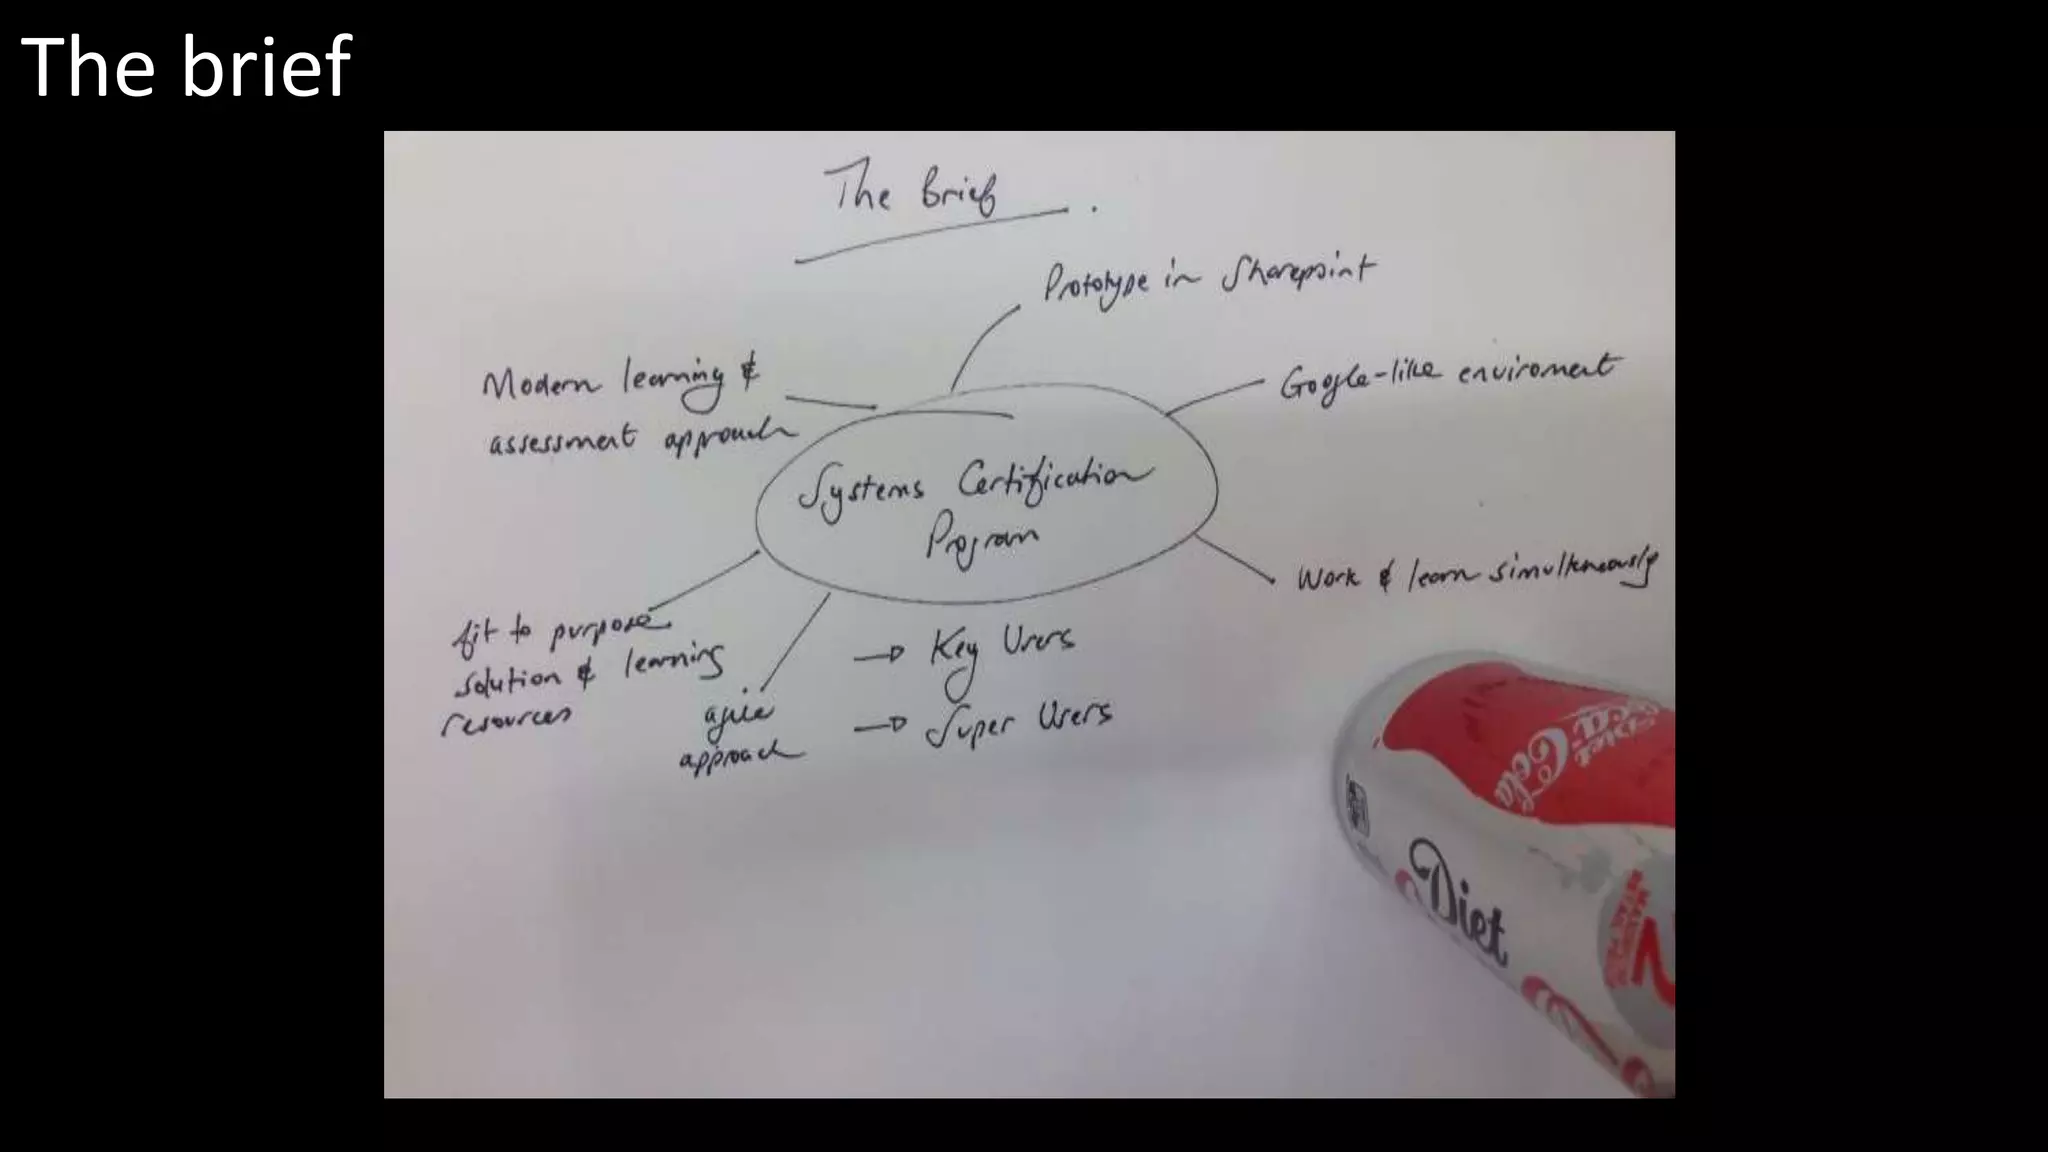 The brief
The Brief
Prototype in Sharepoint
Google-like enviroment
Modern learning &
assessment approach
Systems Certification
Program
Work & learn simultaneously
fit to purpose
solution & learning
resources
agile
approach
→ Key Users
→ Super Users
Diet
Coca-Cola
Diet